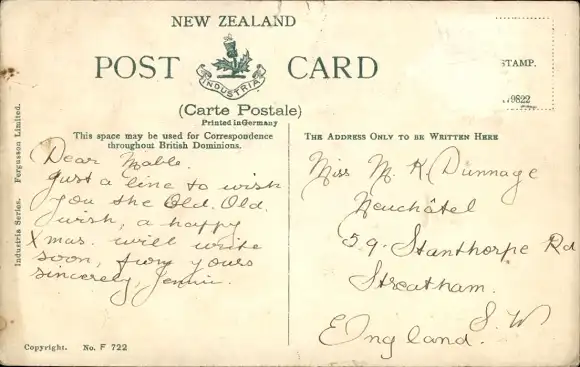 NEW ZEALAND
POST CARD
INDUSTRIA
(Carte Postale)
Printed in Germany
STAMP.
79822
This space may be used for Correspondence
throughout British Dominions.
THE ADDRESS ONLY TO BE WRITTEN HERE
Industria Series. Fergusson Limited.
Dear Mable.
Just a line to wish
you the Old. Old.
wish, a happy
Xmas. will write
soon, yours
sincerely, Jennie.
Miss M. K. Dunnage
Neuchâtel
59. Stanthorpe Rd
Streatham.
S. W
England.
Copyright. No. F 722